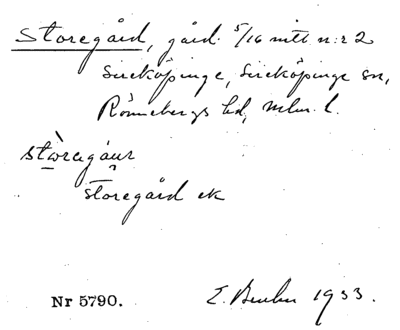 Storegård, gård. 5/16 mtl n:r 2
Sireköpinge, Sireköpinge sn,
Rönnebergs hd, Mlm. l.
stòregáur
storegård ek
Nr 5790.
E. 1933.